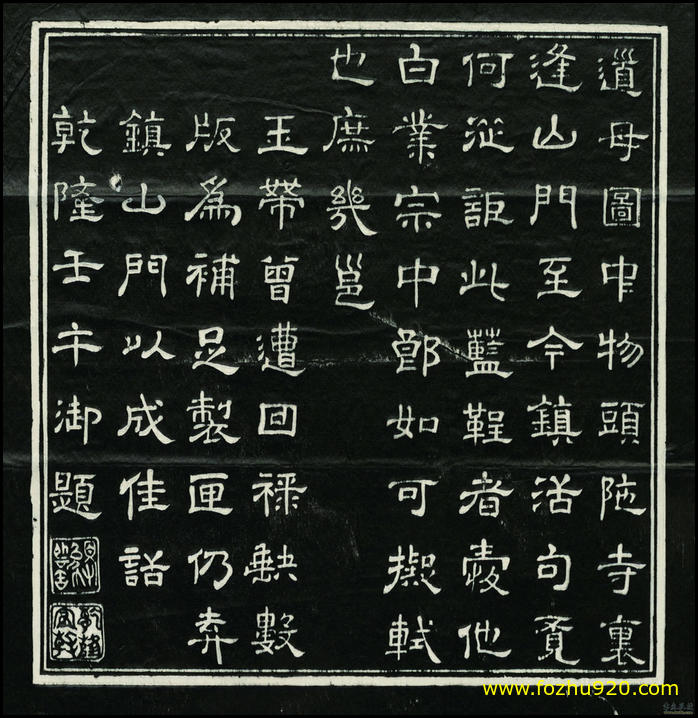 遺母圖中物頭陁寺裏
逢山門至今鎮活句覓
何從詎此藍鞓者他
白業宗中郎如可擬軾
也庶幾邕
玉帶曾遭回祿缺數
版為補足製匣仍弆
鎮山門以成佳話
乾隆壬午御題
乾隆宸翰
www.fozhu920.com